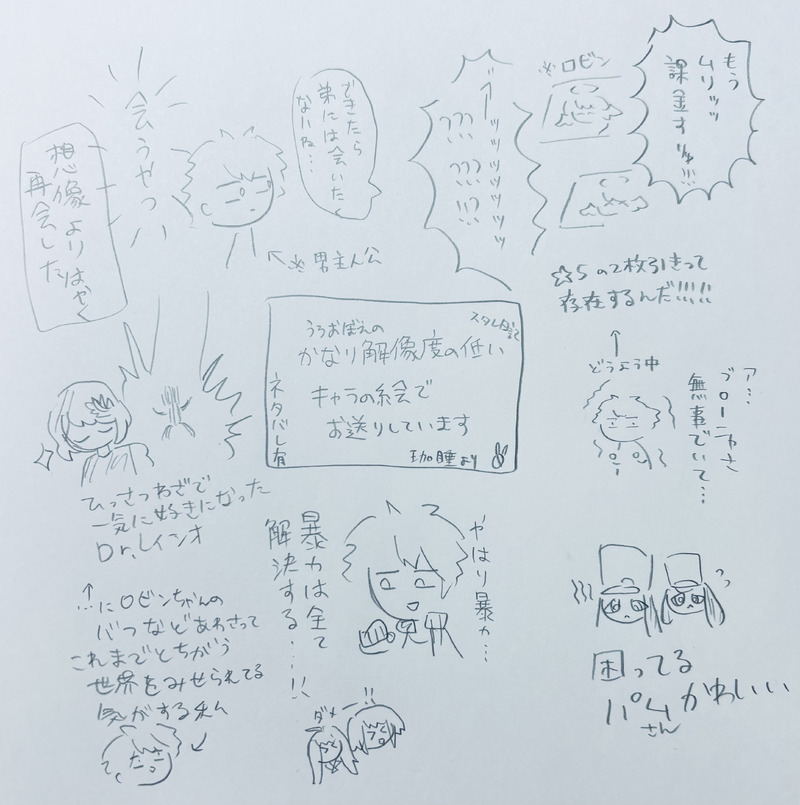 もう
ムリッッ
課金すりゅ!!!
※ロビン
ぐーッッッッッッッッ
???
???!?
☆5の2枚引きって
存在するんだ!!!!!
どうよう中
ア…
ブローニャさ
無事でいて…
できたら
弟には会いたく
ないね…
※男主人公
会うやつ
想像よりはやく
再会した
スタレ日記
うろおぼえの
かなり解像度の低い
キャラの絵で
お送りしています
珈睡より
ネタバレ有
ひっさつわざで
一気に好きになった
Dr.レイシオ
…にロビンちゃんの
バフなどあわさって
これまでとちがう
世界をみせられてる
気がする私
やはり暴力…
暴力は全て
解決する…!!
ダメー!!
困ってる
パムかわいい
さん